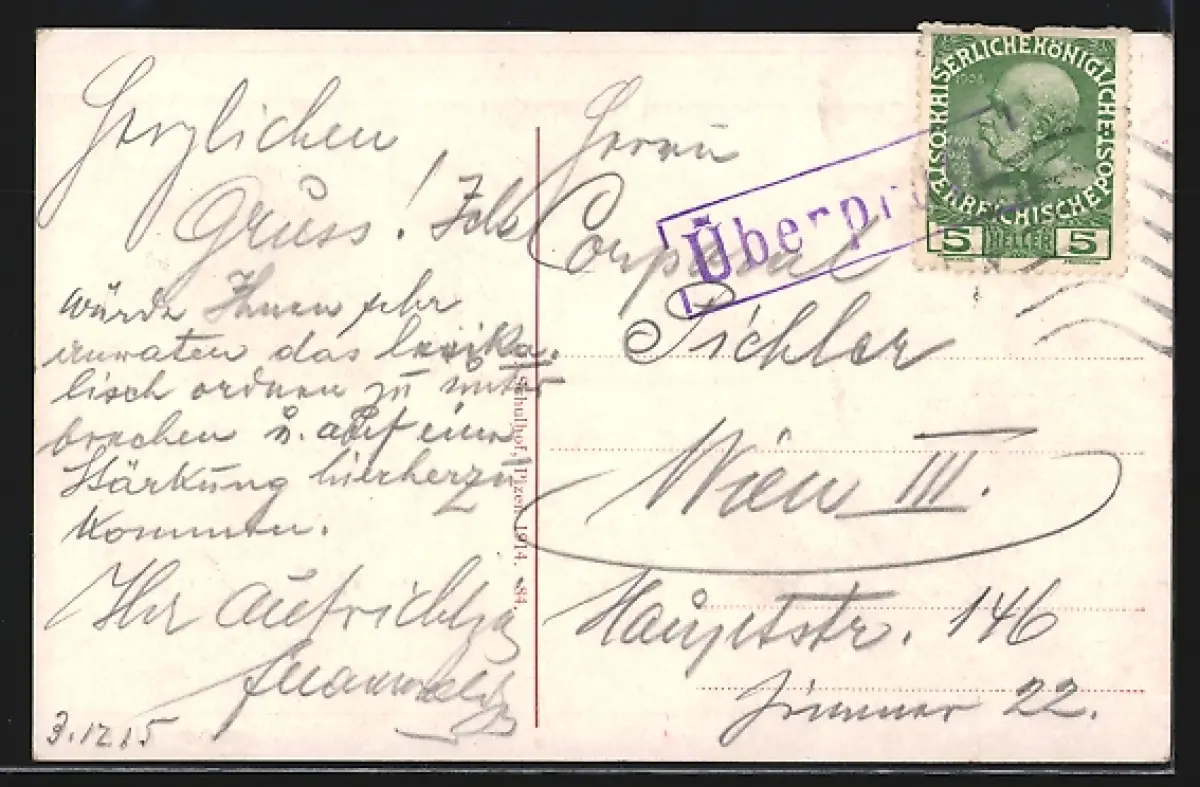 Herzlichen
Gruss! Ich
würde Ihnen sehr
anraten das lexika-
lisch ordnen zu unter
brechen u. auf eine
Stärkung hierherzu
kommen.
Ihr aufrichtig
3.12.15
Herrn
Corporal
Pichler
Wien III.
Hauptstr. 146
Zimmer 22.
Überprüft
K.K. ÖSTERREICHISCHE POST KAISERLICHE KÖNIGLICHE
1908
5 HELLER 5
Schulhof, Pizeň 1914. 84.